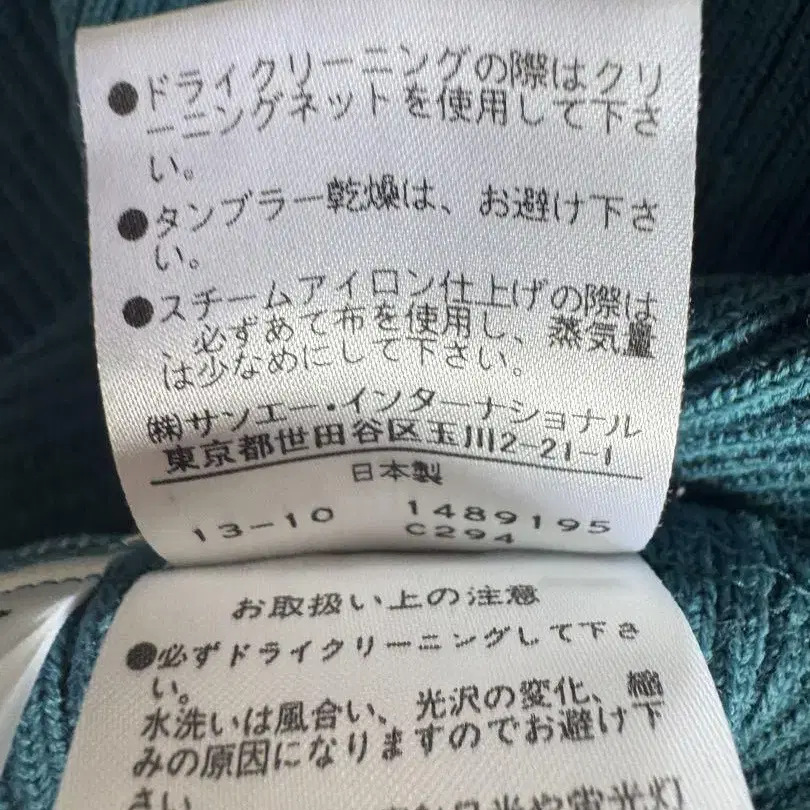 ●ドライクリーニングの際はクリ
ーニングネットを使用して下さ
い。
●タンブラー乾燥は、お避け下さ
い。
●スチームアイロン仕上げの際は
、必ずあて布を使用し、蒸気量
は少なめにして下さい。
㈱サンエー・インターナショナル
東京都世田谷区玉川2-21-1
日本製
13-10 1489195
C294
お取扱い上の注意
●必ずドライクリーニングして下さ
い。
水洗いは風合い、光沢の変化、縮
みの原因になりますのでお避け下
さい
光や蛍光灯